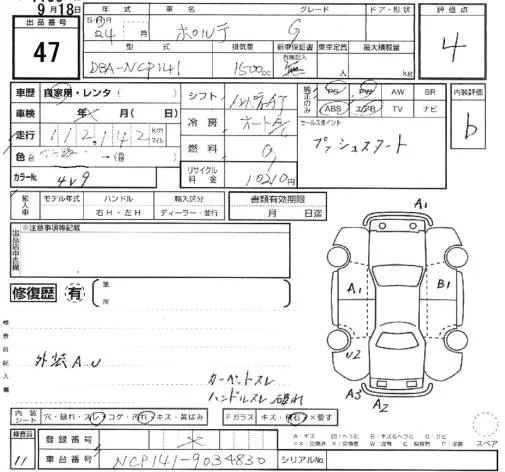 9月18日
出品番号
47
年式 車名 グレード ドア・形状
24 月 ポルテ G
型式 排気量 新車保証書 乗車定員 最大積載量
DBA-NCP141 1500cc 有無記入 人 kg
評価点
4
車歴 自家用・レンタ( )
車検 年 月( 日)
走行 112,142 km マイル
色
カラーNo. 4V9
シフト インパネAT
冷房 オートA/C
燃料 G
リサイクル料金 10210円
純正のみ
PS PW AW SR
ABS エアB TV ナビ
セールスポイント
プッシュスタート
内装評価
b
輸入車
モデル年式 ハンドル 輸入区分
右H・左H ディーラー・並行
書類有効期限
月 日迄
出品店申告欄
※注意事項等記載
修復歴 有 箇所
検査員記入欄
外装AU
カーペットスレ
ハンドルスレ 破れ
A1
A1
B1
U2
A3
A2
内装シート 穴・破れ・スレ・コゲ・汚れ・キズ・黄ばみ
Fガラス キズ・飛石・×要す
スペア
検査員
11
登録番号
車台番号 NCP141-9034830
シリアルNo.